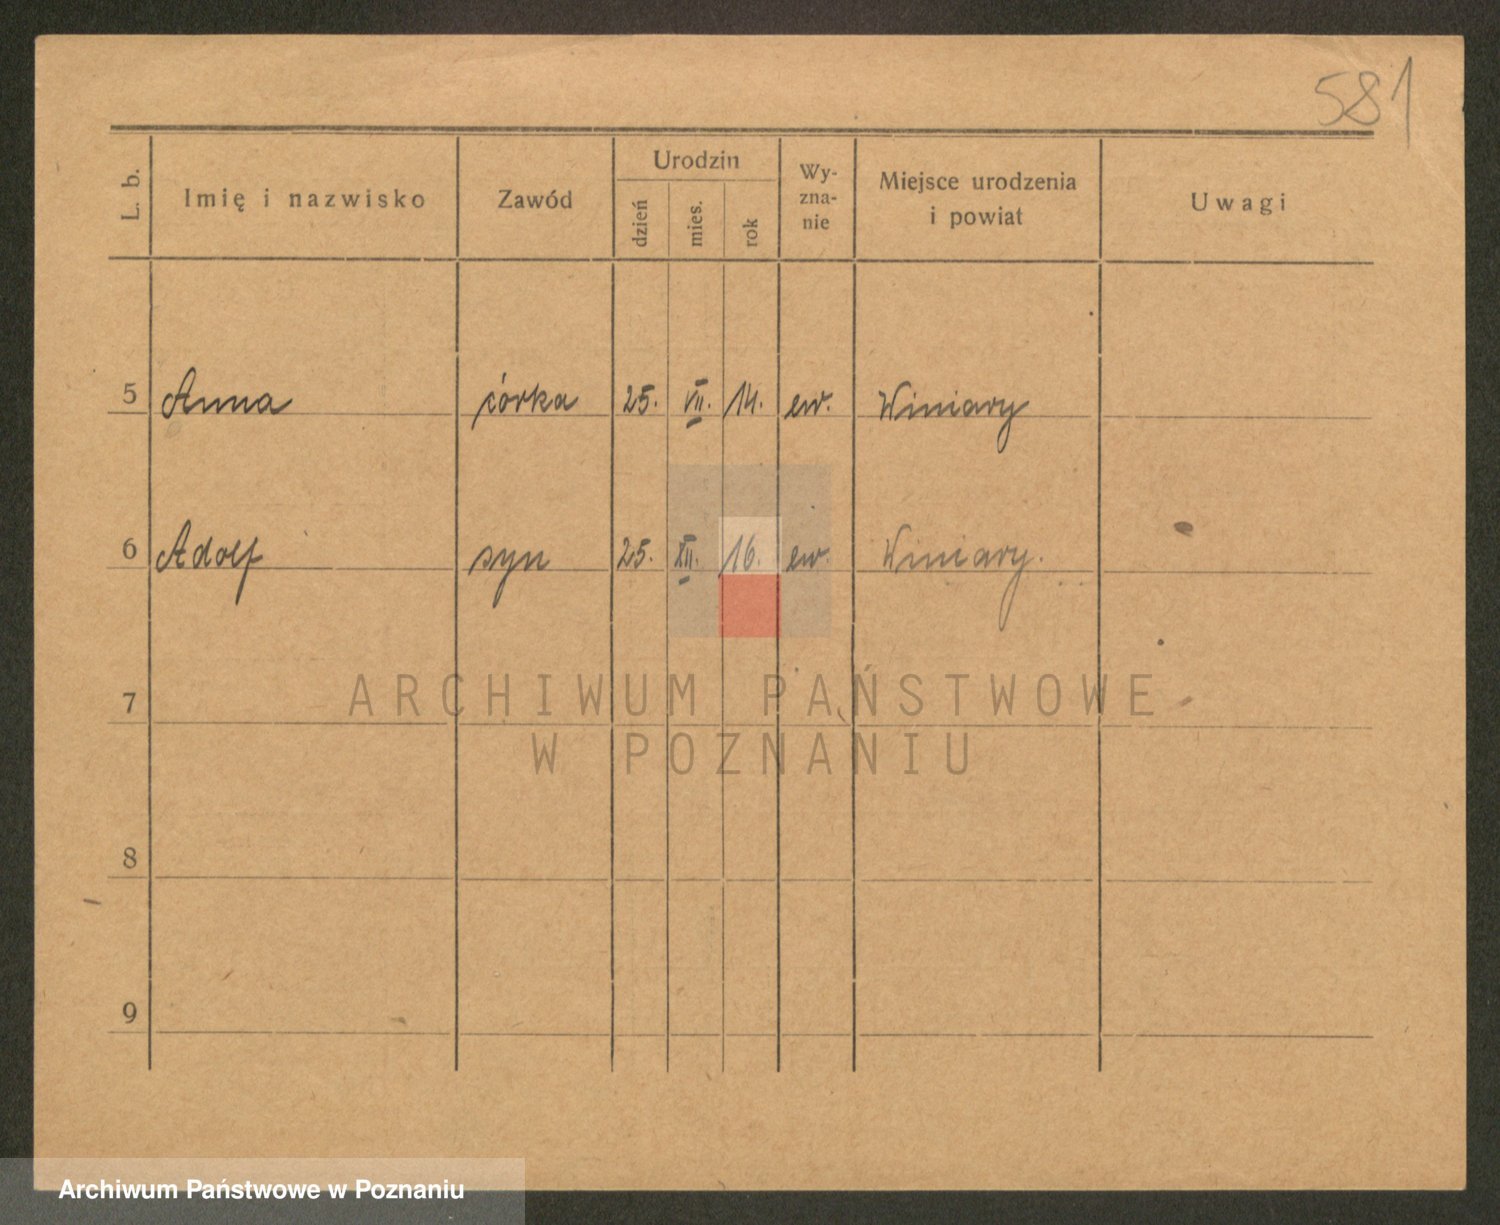 581
L. b. Imię i nazwisko Zawód Urodzin dzień mies. rok Wy-zna-nie Miejsce urodzenia i powiat Uwagi
5 Anna córka 25. VII. 14. ew. Winiary
6 Adolf syn 25. XII. 16. ew. Winiary.
7
ARCHIWUM PAŃSTWOWE
W POZNANIU
8
9
Archiwum Państwowe w Poznaniu